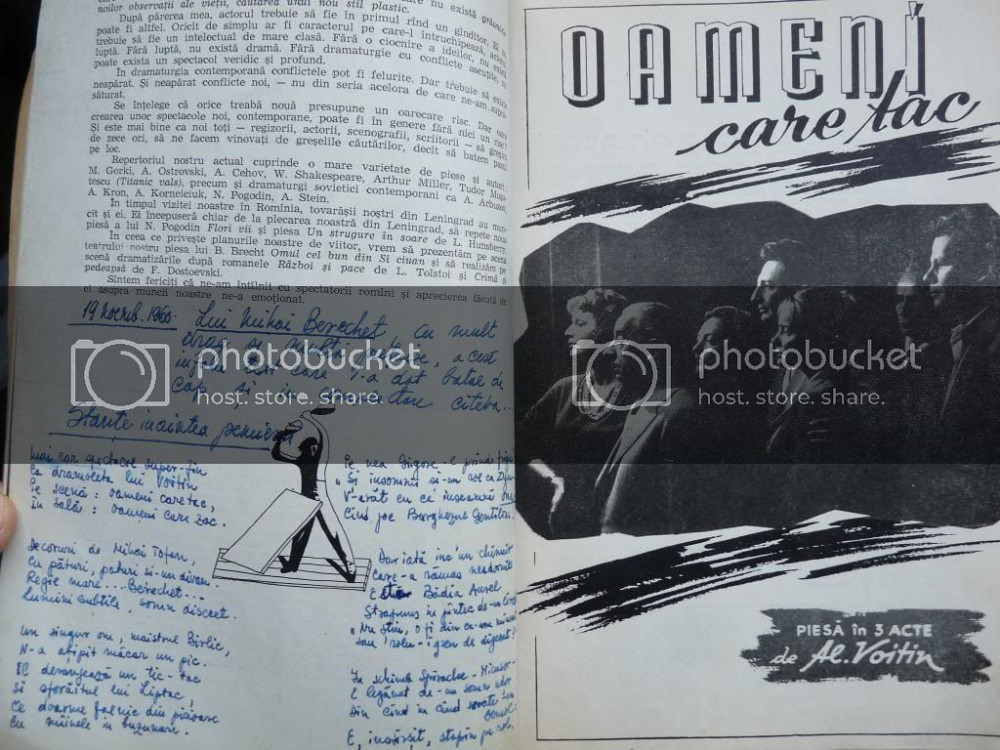 noilor observații ale vieții, căutarea unui nou stil plastic.
După părerea mea, actorul trebuie să fie în primul rînd un gînditor. El nu
poate fi altfel. Oricît de simplu ar fi caracterul pe care-l întruchipează, actorul
trebuie să fie un intelectual de mare clasă. Fără o ciocnire a ideilor, nu există
luptă. Fără luptă, nu există dramă. Fără dramaturgie cu conflicte ascuțite, nu
poate exista un spectacol veridic și profund.
În dramaturgia contemporană conflictele pot fi felurite. Dar trebuie să existe
neapărat. Și neapărat conflicte noi, — nu din seria acelora de care ne-am
săturat.
Se înțelege că orice treabă nouă presupune un oarecare risc. Dar oare
crearea unor spectacole noi, contemporane, poate fi în genere fără nici un risc?
Și este mai bine ca noi toți — regizorii, actorii, scenografii, scriitorii — să greșim
de zece ori, să ne facem vinovați de greșelile căutărilor, decît să batem pasul
pe loc.
Repertoriul nostru actual cuprinde o mare varietate de piese și autori:
M. Gorki, A. Ostrovski, A. Cehov, W. Shakespeare, Arthur Miller, Tudor Mușa-
tescu (Titanic vals), precum și dramaturgi sovietici contemporani ca A. Arbuzov,
A. Kron, A. Korneiciuk, N. Pogodin, A. Stein.
În timpul vizitei noastre în Romînia, tovarășii noștri din Leningrad au mun-
cit și ei. Ei începuseră chiar de la plecarea noastră din Leningrad, să repete noua
piesă a lui N. Pogodin Flori vii și piesa Un strugure în soare de L. Hunsberry.
În ceea ce privește planurile noastre de viitor, vrem să prezentăm pe scena
teatrului nostru piesa lui B. Brecht Omul cel bun din Sî ciuan și să realizăm pe
scenă dramatizările după romanele Război și pace de L. Tolstoi și Crimă și
pedeapsă de F. Dostoevski.
Sîntem fericiți că ne-am întîlnit cu spectatorii romîni și aprecierea făcută de
ei asupra muncii noastre ne-a emoționat.
19 noemb. 1960. Lui Mihai Berechet cu mult
drag și multă
care i-a dat bătae de
cap și în
Stanțe înaintea premierei
Mai rar spectacol super-fin
Ca dramoleta lui Voitin
Pe scenă: oameni care tac,
În sală: oameni care zac.
Decoruri de Mihai Tofan,
Cu pături, paturi si-un divan.
Regie mare... Berechet...
Lumini subtile, somn discret.
Un singur om, maistrul Birlic,
N-a ațipit măcar un pic.
Îl deranjează un tic-tac
Și sforăitul lui Liptac,
Ce doarme falnic din picioare
Cu mîinele în buzunare.
Pe nea Grigore-l prinde
V-arăt eu ce înseamnă
Cînd joc Burghezul Gentilom.
Dar iată
Care-a rămas neadormit
E Bădia Aurel
Străpuns în pîntec de-un
"Nu știu, o fi din
sau rolu-i greu de digerat?
În schimb
E legănat de-un somn ușor
Din cînd în cînd
E, însfîrșit, stăpîn pe rol.
OAMENI
care tac
PIESĂ în 3 ACTE
de Al. Voitin
photobucket
host. store. share.
photobucket
host. store. share.